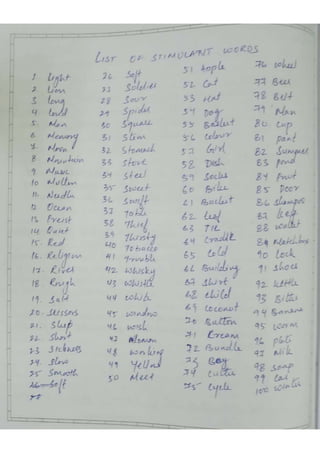 LIST OF STIMULANT WORDS
1. Light
2 Lion
3 Long
4 Loud
5. Man
6 Memory
7 Moon
8 Mountain
9 Music
10 Mutton
11. Needle
12 Ocean
13 Priest
14 Quiet
15 Red
16. Religion
17. River
18 Rough
19. Salt
20. Scissors
21. Sleep
22 Short
23 Sickness
24 Slow
25 Smooth
26 Soft
26 Soft
27 Soldier
28 Sour
29 Spider
30 Square
31 Slim
32 Stomach
33 Stove
34 Steel
35 Sweet
36 Swift
37
38 Thief
39 Thirsty
40 Tobacco
41 Trouble
42 Whisky
43 Whistle
44 White
45 window
46 wish
47 Woman
48 working
49 Yellow
50 Meet
51 Apple
52 Cat
53 Hat
54 Dog
55 Basket
56 Colour
57 Girl
58 Dish
59 Socks
60 Bike
61 Bucket
62 Leaf
63 Tie
64 Cradle
65 Cold
66 Building
67 Shirt
68 Child
69 Coconut
70 Button
71 Cream
72 Bundle
73 Boy
74
75 Cycle
76 Wheel
77 Beer
78 Belt
79 Man
80 Cup
81 pant
82
83 Pond
84 Fruit
85 Door
86 Shampoo
87
88 wallet
89 Matchbox
90 Lock
91 Shoes
92 Kettle
93
94 Banana
95 worm
96 plate
97 Milk
98 Soap
99
100 Winter